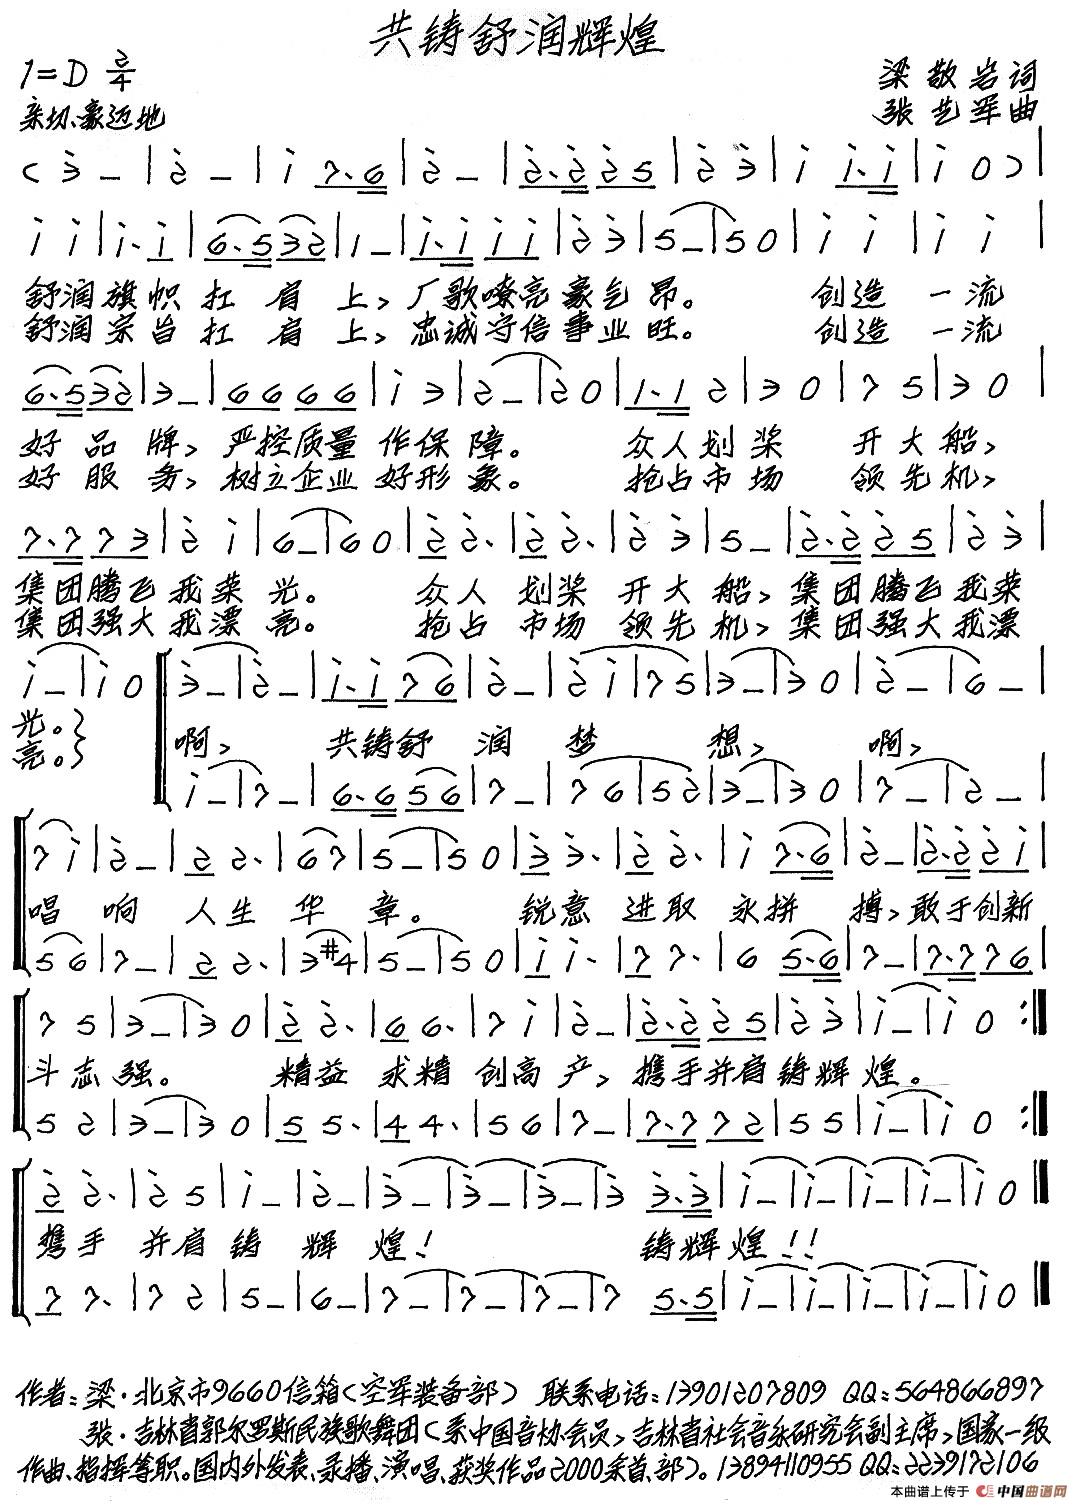 共铸舒润辉煌
1=D 2/4
梁敬岩词
亲切、豪迈地
张艺军曲
舒润旗帜扛肩上,厂歌嘹亮豪气昂。 创造一流
舒润宗旨扛肩上,忠诚守信事业旺。 创造一流
好品牌,严控质量作保障。 众人划桨 开大船,
好服务,树立企业好形象。 抢占市场 领先机,
集团腾飞我荣光。 众人划桨开大船,集团腾飞我荣
集团强大我漂亮。 抢占市场领先机,集团强大我漂
光。
亮。
啊, 共铸舒润梦想, 啊,
唱响人生华章。 锐意进取永拼搏,敢于创新
斗志强。 精益求精创高产,携手并肩铸辉煌。
携手并肩铸辉煌! 铸辉煌!!
作者:梁·北京市9660信箱(空军装备部) 联系电话:13901207809 QQ:564866897
张·吉林省郭尔罗斯民族歌舞团(系中国音协会员,吉林省社会音乐研究会副主席,国家一级
作曲、指挥等职。国内外发表、录播、演唱、获奖作品2000余首、部)。13894110955 QQ:2239172106
本曲谱上传于 中国曲谱网